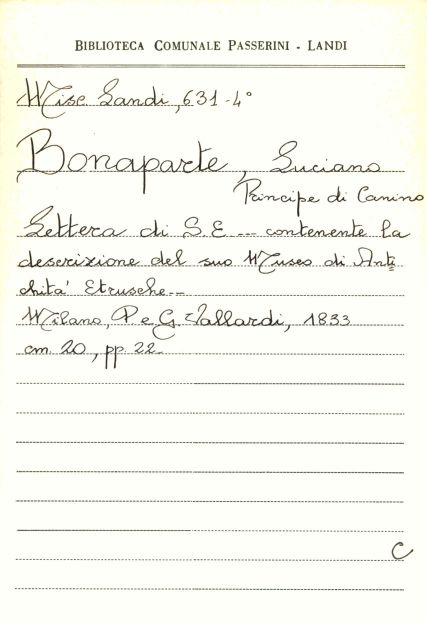 BIBLIOTECA COMUNALE PASSERINI - LANDI
Misc. Landi, 631-4°
Bonaparte, Luciano
Principe di Canino
Lettera di S.E --- contenente la
descrizione del suo Museo di Anti=
chità Etrusche--
Milano, P. e G. Vallardi, 1833
cm. 20, pp. 22-
C